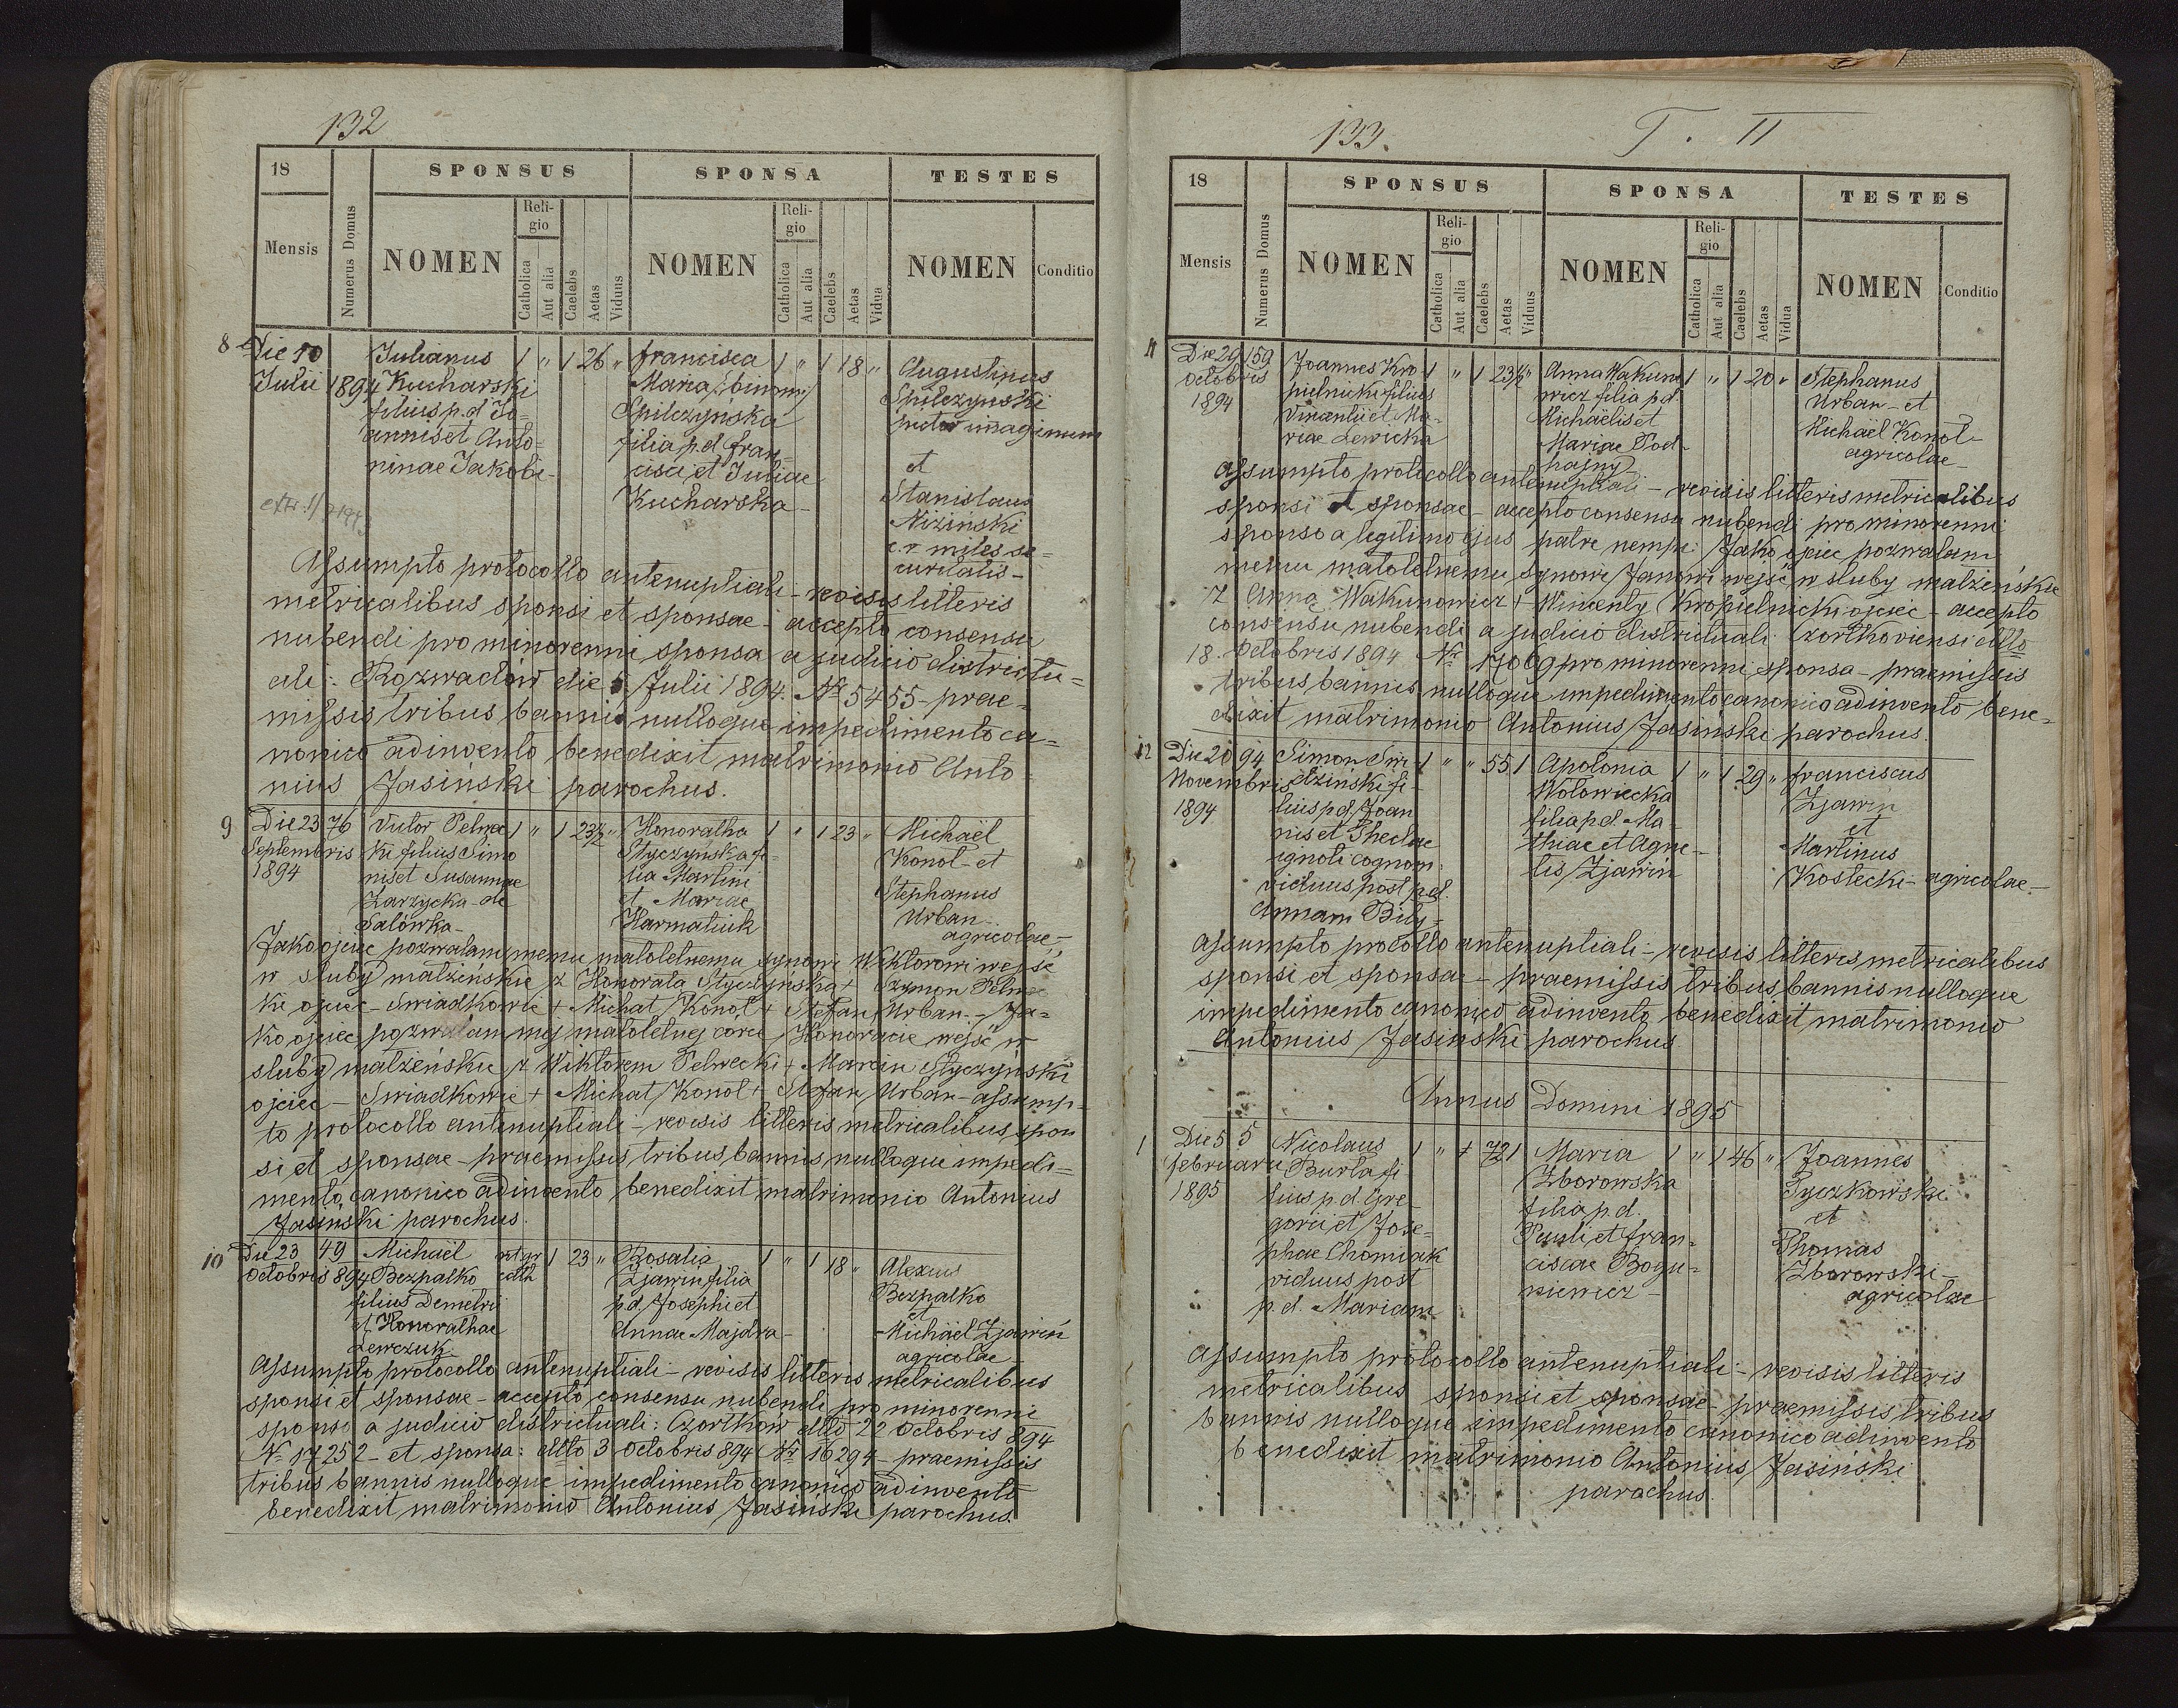 132
18
SPONSUS
SPONSA
TESTES
Mensis
Numerus Domus
NOMEN
Religio
Catholica
Aut alia
Caelebs
Aetas
Viduus
NOMEN
Religio
Catholica
Aut alia
Caelebs
Aetas
Vidua
NOMEN
Conditio
8 Die 10 Julianus 1 " 1 26 " Francisca 1 " 1 18 " Augustinus
Julii 1894 Kucharski Maria /:binom:/ Spilczyński
filius p.d. Jo= Spilczyńska pictor imaginum
annis et Anto= filia p.d. Fran= et
ninae Jakobi- cisci et Juliae Stanislaus
Kucharska- Niziński
c.r. miles se=
curitatis-
Assumpto protocollo antenuptiali - revisis litteris
metricalibus sponsi et sponsae - accepto consensu
nubendi pro minorenni sponsa a judicio districtu=
ali: Rozwadów die 5 Julii 1894. Nr 5455 - prae=
missis tribus bannis nulloque impedimento ca=
nonico adinvento benedixit matrimonio Anto=
nius Jasiński parochus.
9 Die 23 76 Victor Pelwec 1 " 1 23½ " Honoratha 1 " 1 23 " Michaël
Septembris ki filius Simo Styczyńska fi= Konol - et
1894 nis et Susannae lia Martini Stephanus
Zarzycka - de et Mariae Urban -
Salówka- Harmatiuk agricolae-
Jako ojciec pozwalam memu małoletnemu synowi Wiktorowi wejść
w śluby małżeńskie z Honoratą Styczyńską + Szymon Pelwec
ki ojciec - Swiadkowie + Michał Konol + Stefan Urban - Ja=
ko ojciec pozwalam mej małoletnej córce Honoracie wejść w
śluby małżeńskie z Wiktorem Pelwecki + Marcin Styczyński
ojciec - Swiadkowie + Michał Konol + Stefan Urban - assump=
to protocollo antenuptiali - revisis litteris metricalibus spon
si et sponsae - praemissis tribus bannis nulloque impedi=
mento canonico adinvento benedixit matrimonio Antonius
Jasiński parochus.
10 Die 23 49 Michaël rit. gr. 1 23 " Rosalia 1 " 1 18 " Alexius
Octobris 894 Bezpalko cath Zjawin filia Bezpalko
filius Demetrii p.d. Josephi et et
et Honorathae Annae Majdra- Michaël Zjawin
Lewczuk. agricolae
Assumpto protocollo antenuptiali - revisis litteris metricalibus
sponsi et sponsae - accepto consensu nubendi pro minorenni
sponso a judicio districtuali: Czortków ddto 22 Octobris 894
Nr 17252 - et sponsa: ddto 3 Octobris 894 Nr 16294 - praemissis
tribus bannis nulloque impedimento canonico adinvento
benedixit matrimonio Antonius Jasiński parochus.
133.
T. II
18
SPONSUS
SPONSA
TESTES
Mensis
Numerus Domus
NOMEN
Religio
Catholica
Aut alia
Caelebs
Aetas
Viduus
NOMEN
Religio
Catholica
Aut alia
Caelebs
Aetas
Vidua
NOMEN
Conditio
11 Die 29 159 Joannes Kro 1 " 1 23½ " Anna Wakuno 1 " 1 20 " Stephanus
Octobris pielnicki filius wicz filia p.d. Urban - et
1894 Vincentii et Ma- Michaëlis et Michaël Konol-
riae Lewicka Mariae Pod- agricolae-
hajny-
Assumpto protocollo antenuptiali - revisis litteris metricalibus
sponsi et sponsae - accepto consensu nubendi pro minorenni
sponso a legitimo ejus patre nempe: Jako ojciec pozwalam
memu małoletnemu synowi Janowi wejść w śluby małżeńskie
z Anną Wakunowicz + Wincenty Kropielnicki ojciec - accepto
consensu nubendi a judicio districtuali Czortkoviensi ddto
18. Octobris 1894 Nr 17069 pro minorenni sponsa - praemissis
tribus bannis nulloque impedimento canonico adinvento bene=
dixit matrimonio Antonius Jasiński parochus.
12 Die 20 94 Simon Swi 1 " " 55 1 Apolonia 1 " 1 29 " Franciscus
Novembris dziński fi- Wołowiecka Zjawin
1894 lius p.d. Joan filia p.d. Ma- et
nis et Theclae thiae et Agne- Martinus
ignoti cognom. tis Zjawin Kostecki - agricolae-
viduus post p.d.
Annam Bily-
Assumpto procollo antenuptiali - revisis litteris metricalibus
sponsi et sponsae - praemissis tribus bannis nulloque
impedimento canonico adinvento benedixit matrimonio
Antonius Jasiński parochus
Annus Domini 1895
1 Die 5 5 Nicolaus 1 " 72 1 Maria 1 " 1 46 " Joannes
Februarii Burła fi Zborowska Tyczkowski
1895 lius p.d. Gre- filia p.d. et
gorii et Jose- Pauli et Fran= Thomas
phae Chomiak ciscae Bogu= Zborowski-
viduus post niewicz - agricolae
p.d. Mariam
Assumpto protocollo antenuptiali - revisis litteris
metricalibus sponsi et sponsae - praemissis tribus
bannis nulloque impedimento canonico adinvento
benedixit matrimonio Antonius Jasiński
parochus.